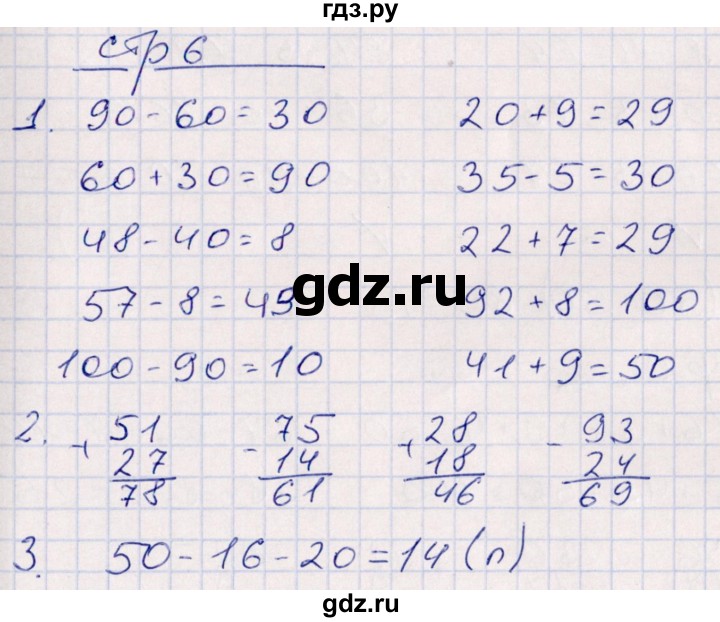 гдз.ру
стр 6
1. 90 - 60 = 30 20 + 9 = 29
60 + 30 = 90 35 - 5 = 30
48 - 40 = 8 22 + 7 = 29
gdz.ru
57 - 8 = 49 92 + 8 = 100
100 - 90 = 10 41 + 9 = 50
2. + 51 - 75 + 28 - 93
27 14 18 24
78 61 46 69
3. 50 - 16 - 20 = 14 (п)
gdz.ru